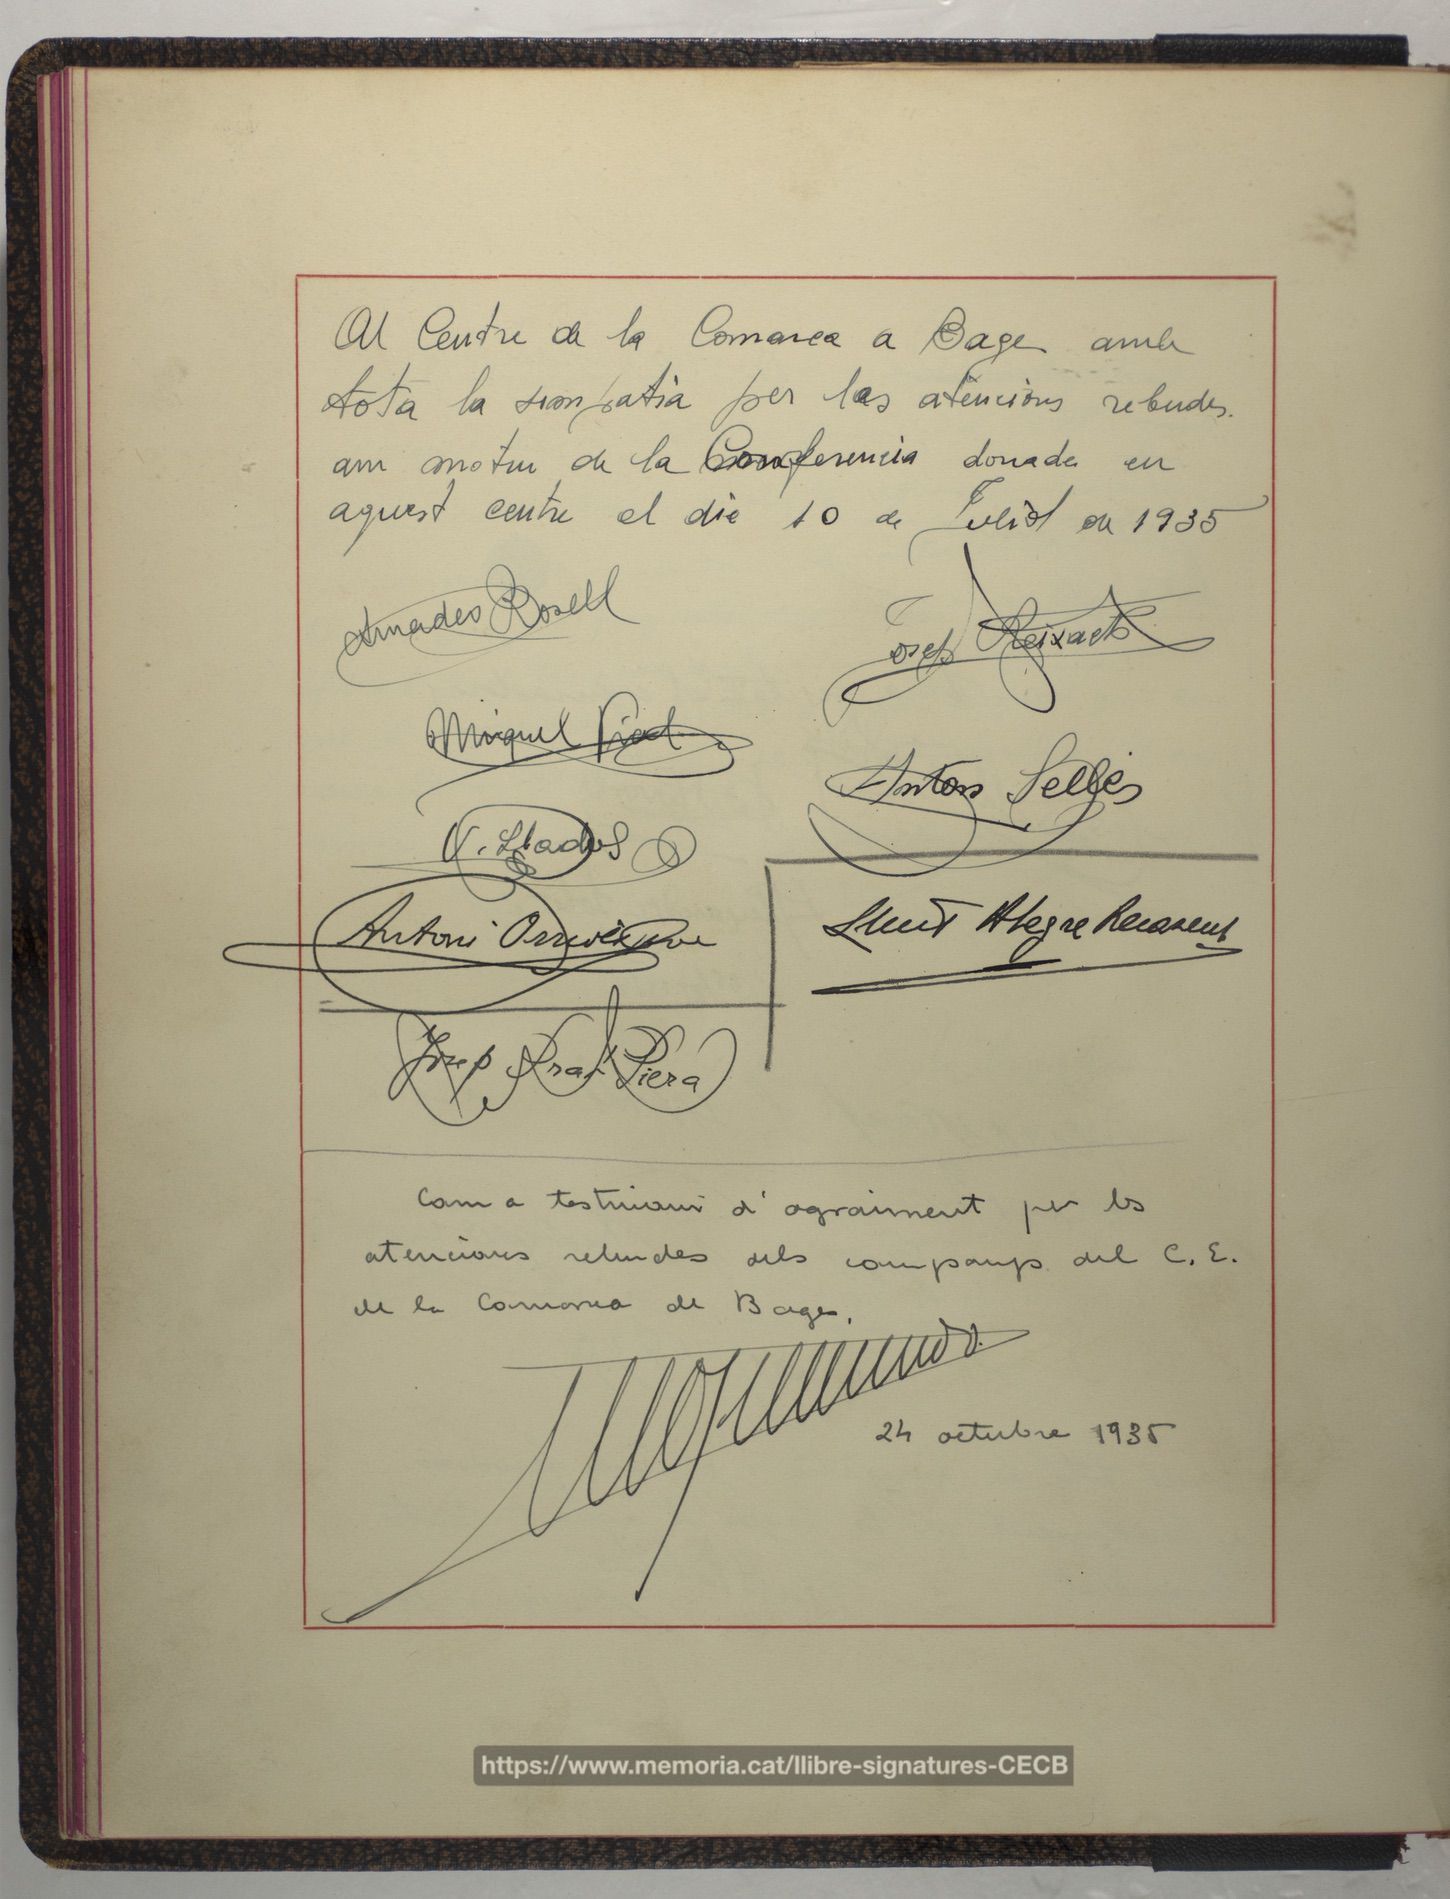 Al Centre de la Comarca a Bages amb
tota la simpatia per las atencions rebudes.
am motiu de la Conferencia donada en
aquest centre el die 10 de Juliol de 1935
Amadeo Rosell
Josep Reixach
Miquel
Anton Selles
V. Llados
Antoni
Lluis Alegre Recasens
Josep Prat Piera
Com a testimoni d'agraiment per les
atencions rebudes dels companys del C. E.
de la Comarca de Bages.
24 octubre 1935
https://www.memoria.cat/llibre-signatures-CECB